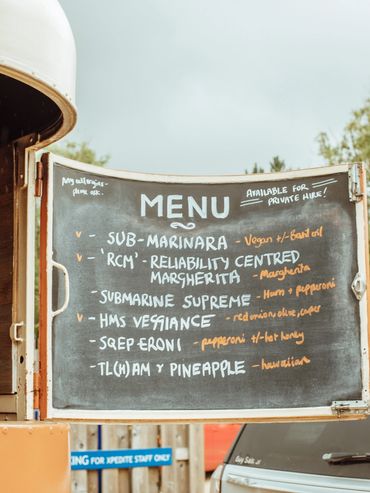 Any allergies -
please ask.
MENU
AVAILABLE FOR
PRIVATE HIRE!
v - SUB-MARINARA - Vegan +/- Basil oil
v - 'RCM' - RELIABILITY CENTRED
MARGHERITA - Margherita
- SUBMARINE SUPREME - Ham + pepperoni
v - HMS VEGGIANCE - red onion, olive, caper
- SQEP-ERONI - pepperoni +/- hot honey
- TL(H)AM & PINEAPPLE - hawaiian
KING FOR XPEDITE STAFF ONLY